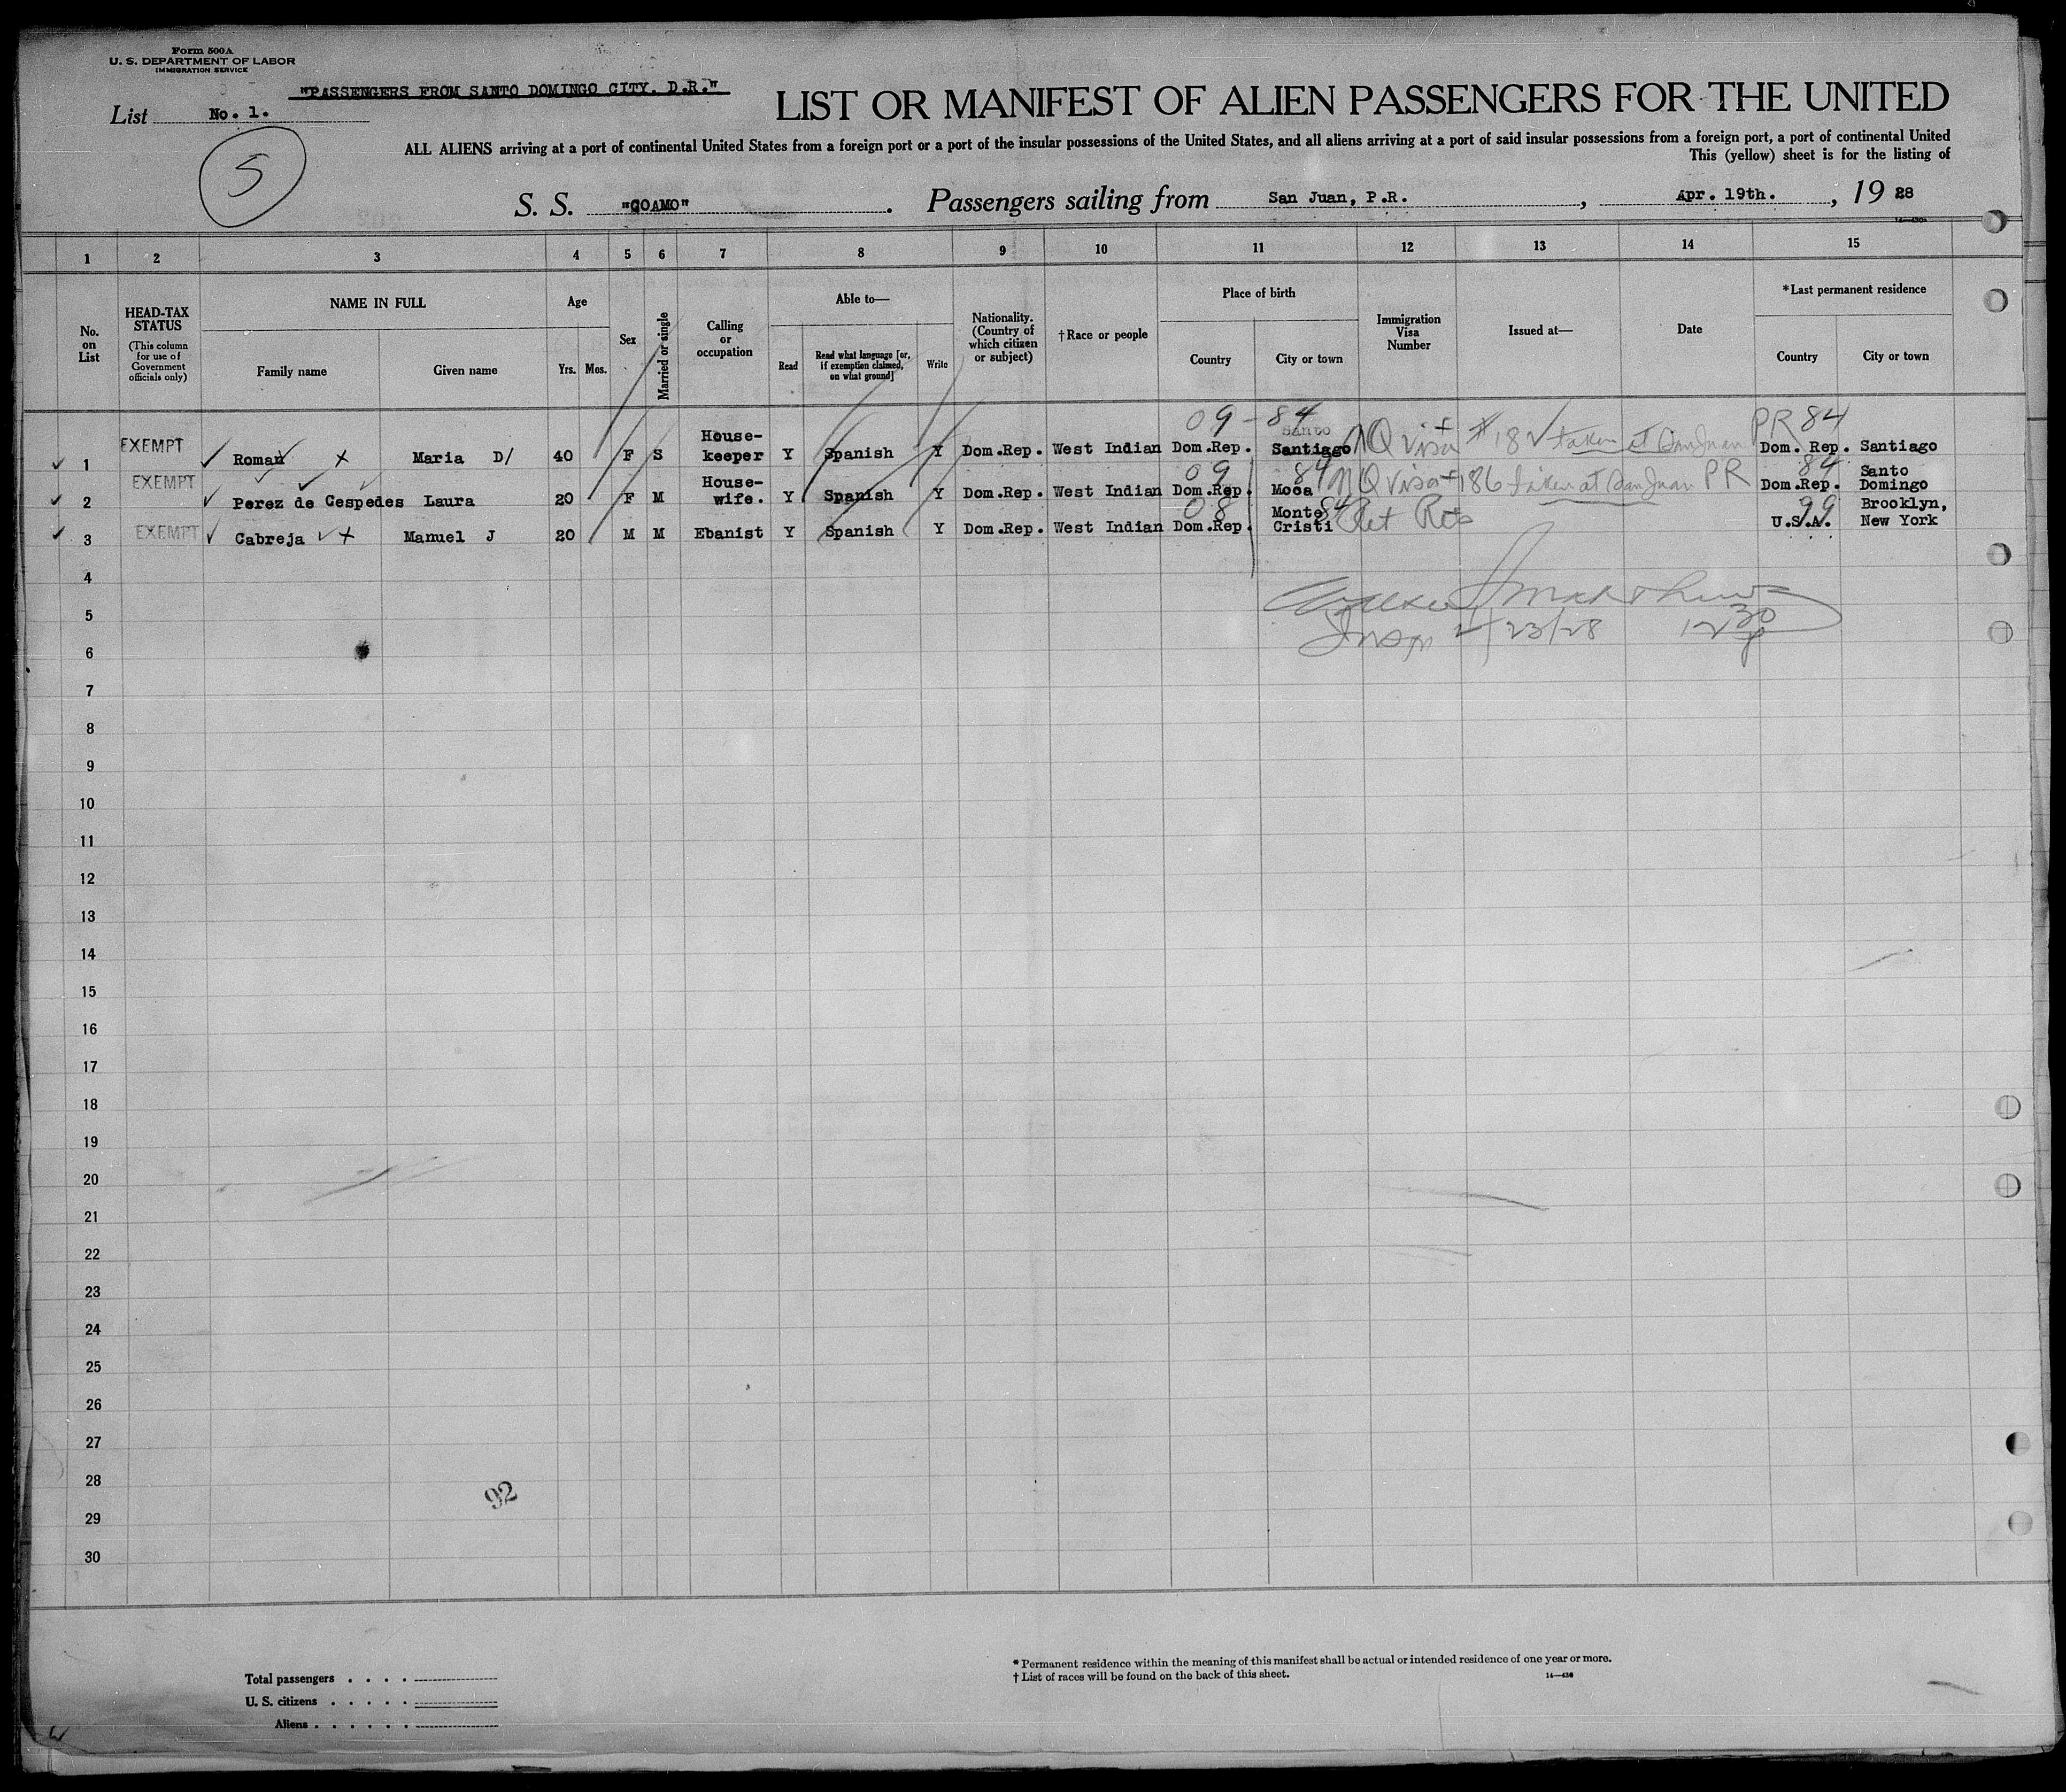 Form 500A
U. S. DEPARTMENT OF LABOR
IMMIGRATION SERVICE
"PASSENGERS FROM SANTO DOMINGO CITY. D.R."
List No. 1.
5
LIST OR MANIFEST OF ALIEN PASSENGERS FOR THE UNITED
ALL ALIENS arriving at a port of continental United States from a foreign port or a port of the insular possessions of the United States, and all aliens arriving at a port of said insular possessions from a foreign port, a port of continental United
This (yellow) sheet is for the listing of
S. S. "COAMO". Passengers sailing from San Juan, P.R., Apr. 19th., 19 28
1 2 3 4 5 6 7 8 9 10 11 12 13 14 15
No. on List
HEAD-TAX STATUS
(This column for use of Government officials only)
NAME IN FULL
Family name Given name
Age
Yrs. Mos.
Sex
Married or single
Calling or occupation
Able to—
Read
Read what language [or, if exemption claimed, on what ground]
Write
Nationality. (Country of which citizen or subject)
†Race or people
Place of birth
Country City or town
Immigration Visa Number
Issued at—
Date
*Last permanent residence
Country City or town
09-84 PR 84
1 EXEMPT Roman X Maria D/ 40 F S House-keeper Y Spanish Y Dom.Rep. West Indian Dom.Rep. Santo Santiago NQ visa #182 taken at San Juan Dom. Rep. Santiago
09 84 84
2 EXEMPT Perez de Cespedes Laura 20 F M House-wife. Y Spanish Y Dom.Rep. West Indian Dom.Rep. Moca NQ visa 186 taken at San Juan PR Dom.Rep. Santo Domingo
08 84 99
3 EXEMPT Cabreja X Manuel J 20 M M Ebanist Y Spanish Y Dom.Rep. West Indian Dom.Rep. Monte Cristi Ret Res U.S.A. Brooklyn, New York
4
5
Insp 4/23/28 12 30 p
6
7
8
9
10
11
12
13
14
15
16
17
18
19
20
21
22
23
24
25
26
27
28
92
29
30
Total passengers
U. S. citizens
Aliens
* Permanent residence within the meaning of this manifest shall be actual or intended residence of one year or more.
† List of races will be found on the back of this sheet.
14—430